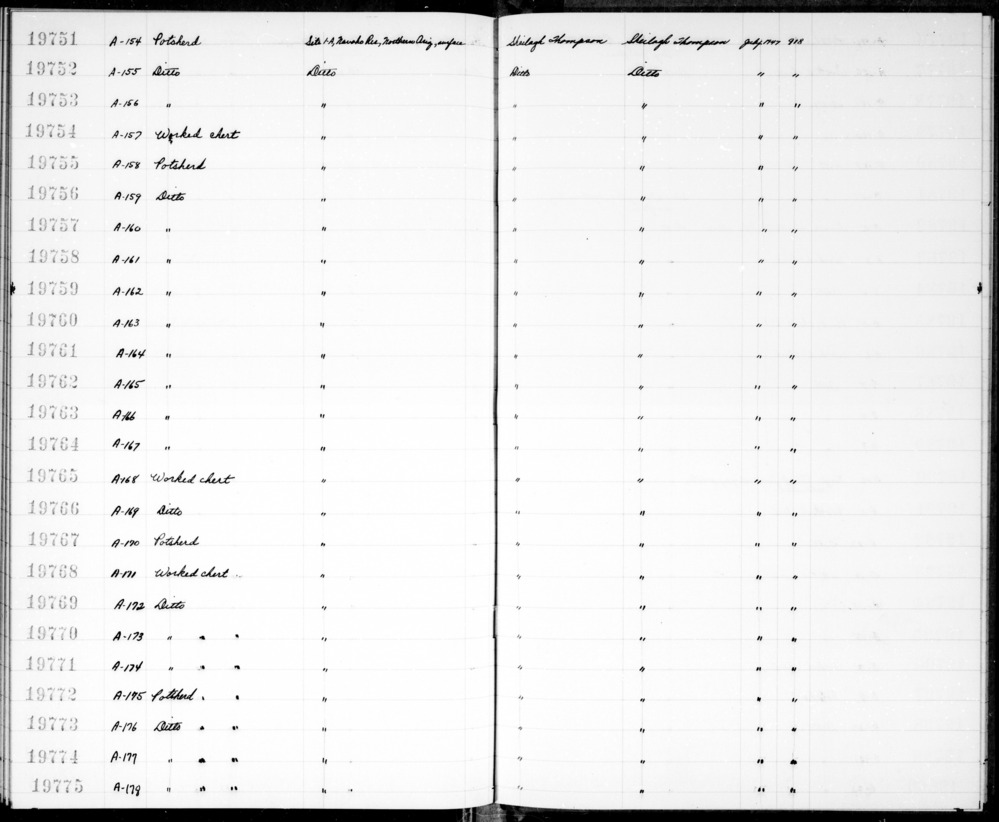 19751 A-154 Potsherd Site 1-A, Navaho Res, Northern Ariz, surface Sheilagh Thompson Sheilagh Thompson July 1947 918
19752 A-155 Ditto Ditto Ditto Ditto " "
19753 A-156 " " " " " "
19754 A-157 Worked chert " " " " "
19755 A-158 Potsherd " " " " "
19756 A-159 Ditto " " " " "
19757 A-160 " " " " " "
19758 A-161 " " " " " "
19759 A-162 " " " " " "
19760 A-163 " " " " " "
19761 A-164 " " " " " "
19762 A-165 " " " " " "
19763 A-166 " " " " " "
19764 A-167 " " " " " "
19765 A-168 Worked chert " " " " "
19766 A-169 Ditto " " " " "
19767 A-170 Potsherd " " " " "
19768 A-171 Worked chert " " " " "
19769 A-172 Ditto " " " " "
19770 A-173 " " " " " " " "
19771 A-174 " " " " " " " "
19772 A-175 Potsherd " " " " " " "
19773 A-176 Ditto " " " " " " "
19774 A-177 " " " " " " " "
19775 A-178 " " " " " " " " "